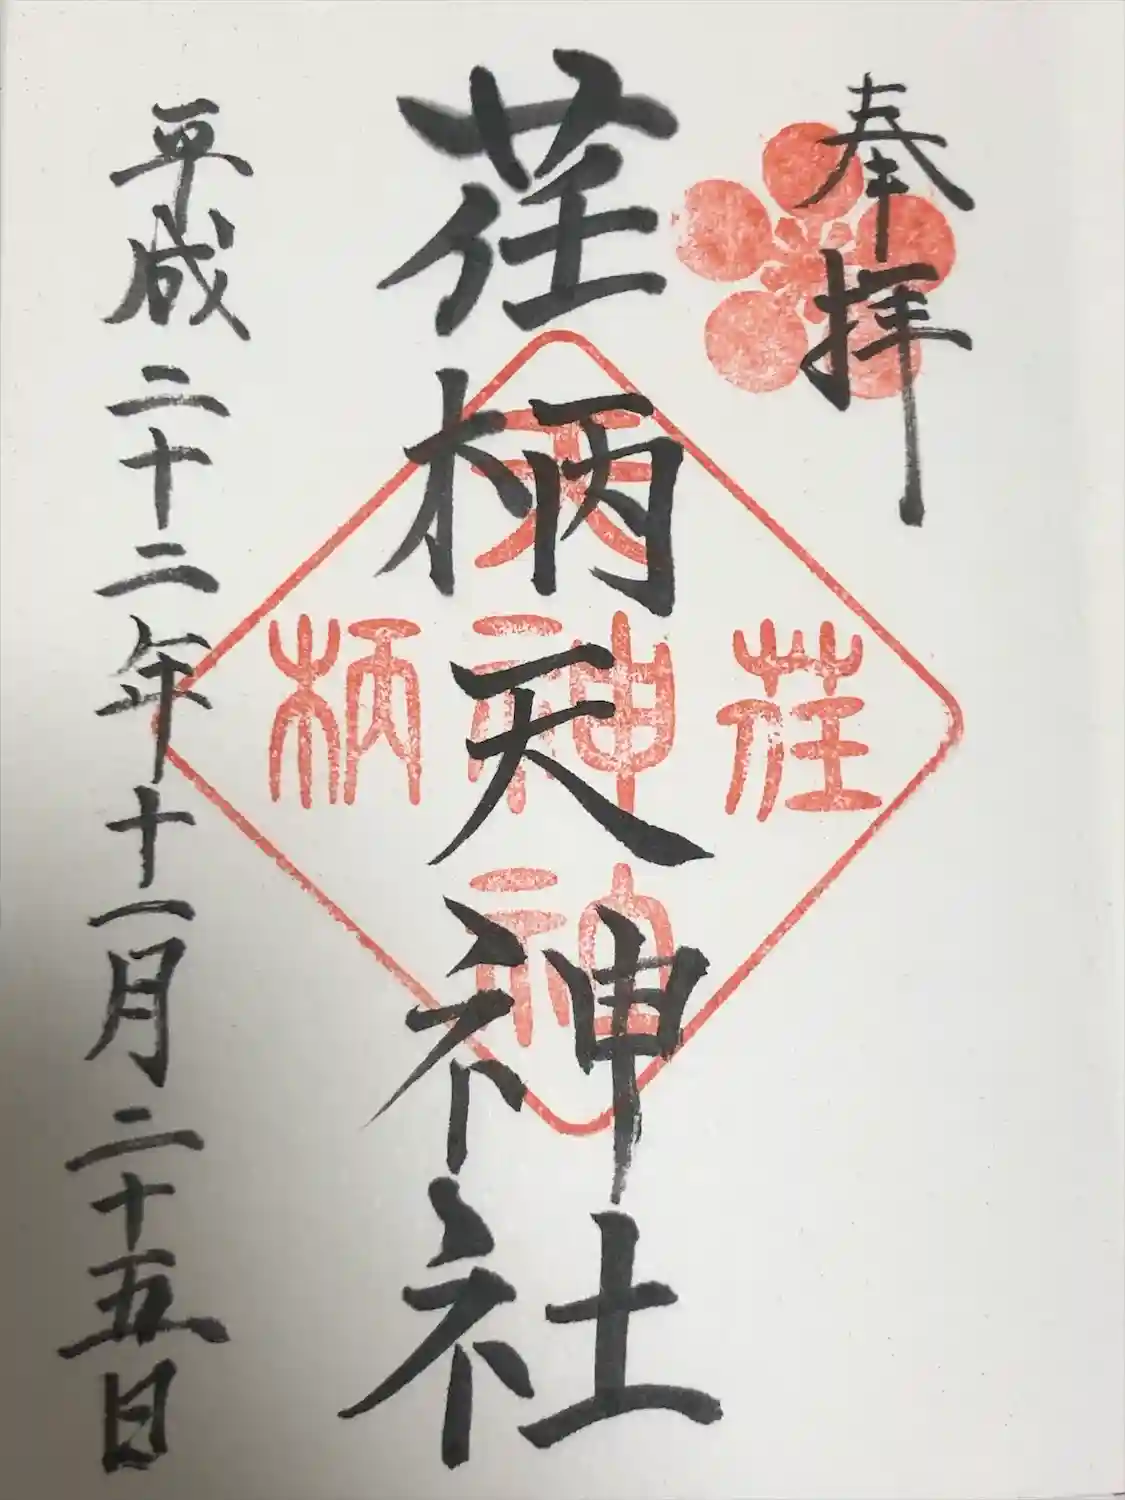 奉拝
荏柄天神社
平成二十二年十一月二十五日
荏
天神
柄
神